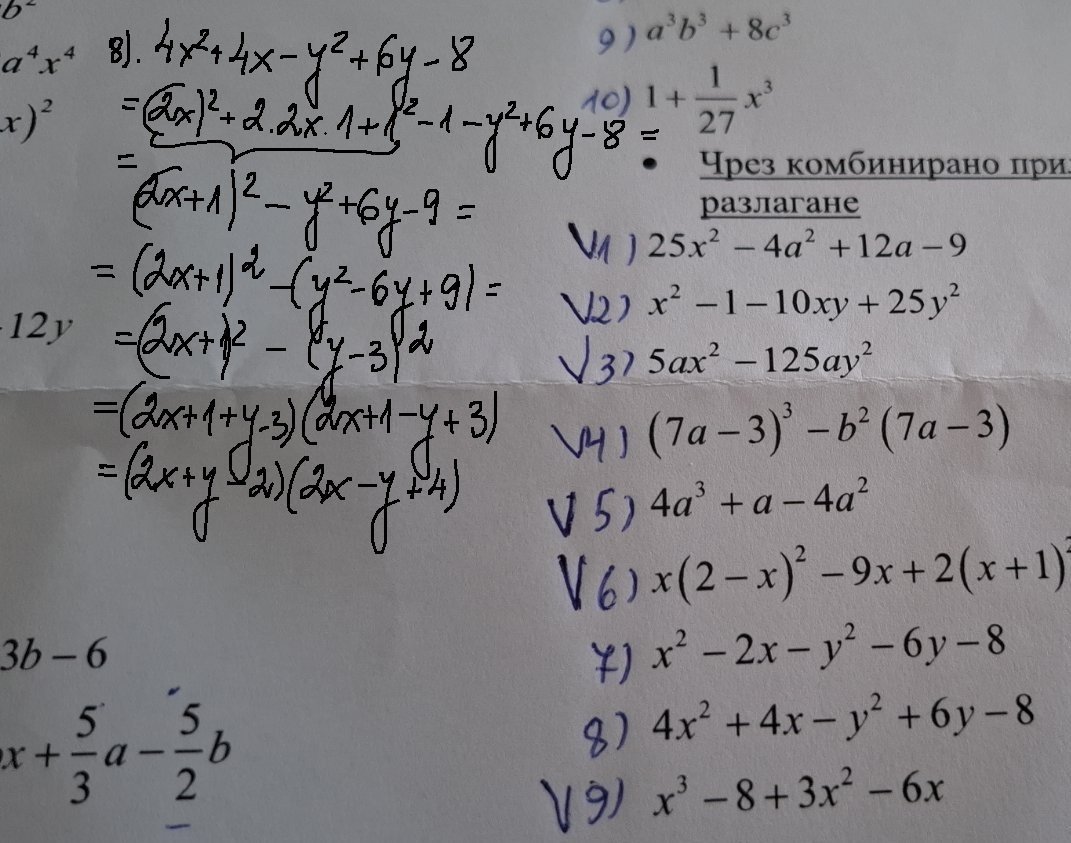 b²
a⁴x⁴
x)²
12y
3b − 6
x + 5/3 a − 5/2 b
8). 4x² + 4x − y² + 6y − 8
= (2x)² + 2.2x.1 + 1² − 1 − y² + 6y − 8 =
=
(2x+1)² − y² + 6y − 9 =
= (2x+1)² − (y² − 6y + 9) =
= (2x+1)² − (y−3)²
= (2x+1+y−3)(2x+1−y+3)
= (2x+y−2)(2x−y+4)
9) a³b³ + 8c³
10) 1 + 1/27 x³
• Чрез комбинирано
разлагане
V1) 25x² − 4a² + 12a − 9
V2) x² − 1 − 10xy + 25y²
V3) 5ax² − 125ay²
V4) (7a − 3)³ − b² (7a − 3)
V5) 4a³ + a − 4a²
V6) x(2 − x)² − 9x + 2(x + 1)²
7) x² − 2x − y² − 6y − 8
8) 4x² + 4x − y² + 6y − 8
V9) x³ − 8 + 3x² − 6x